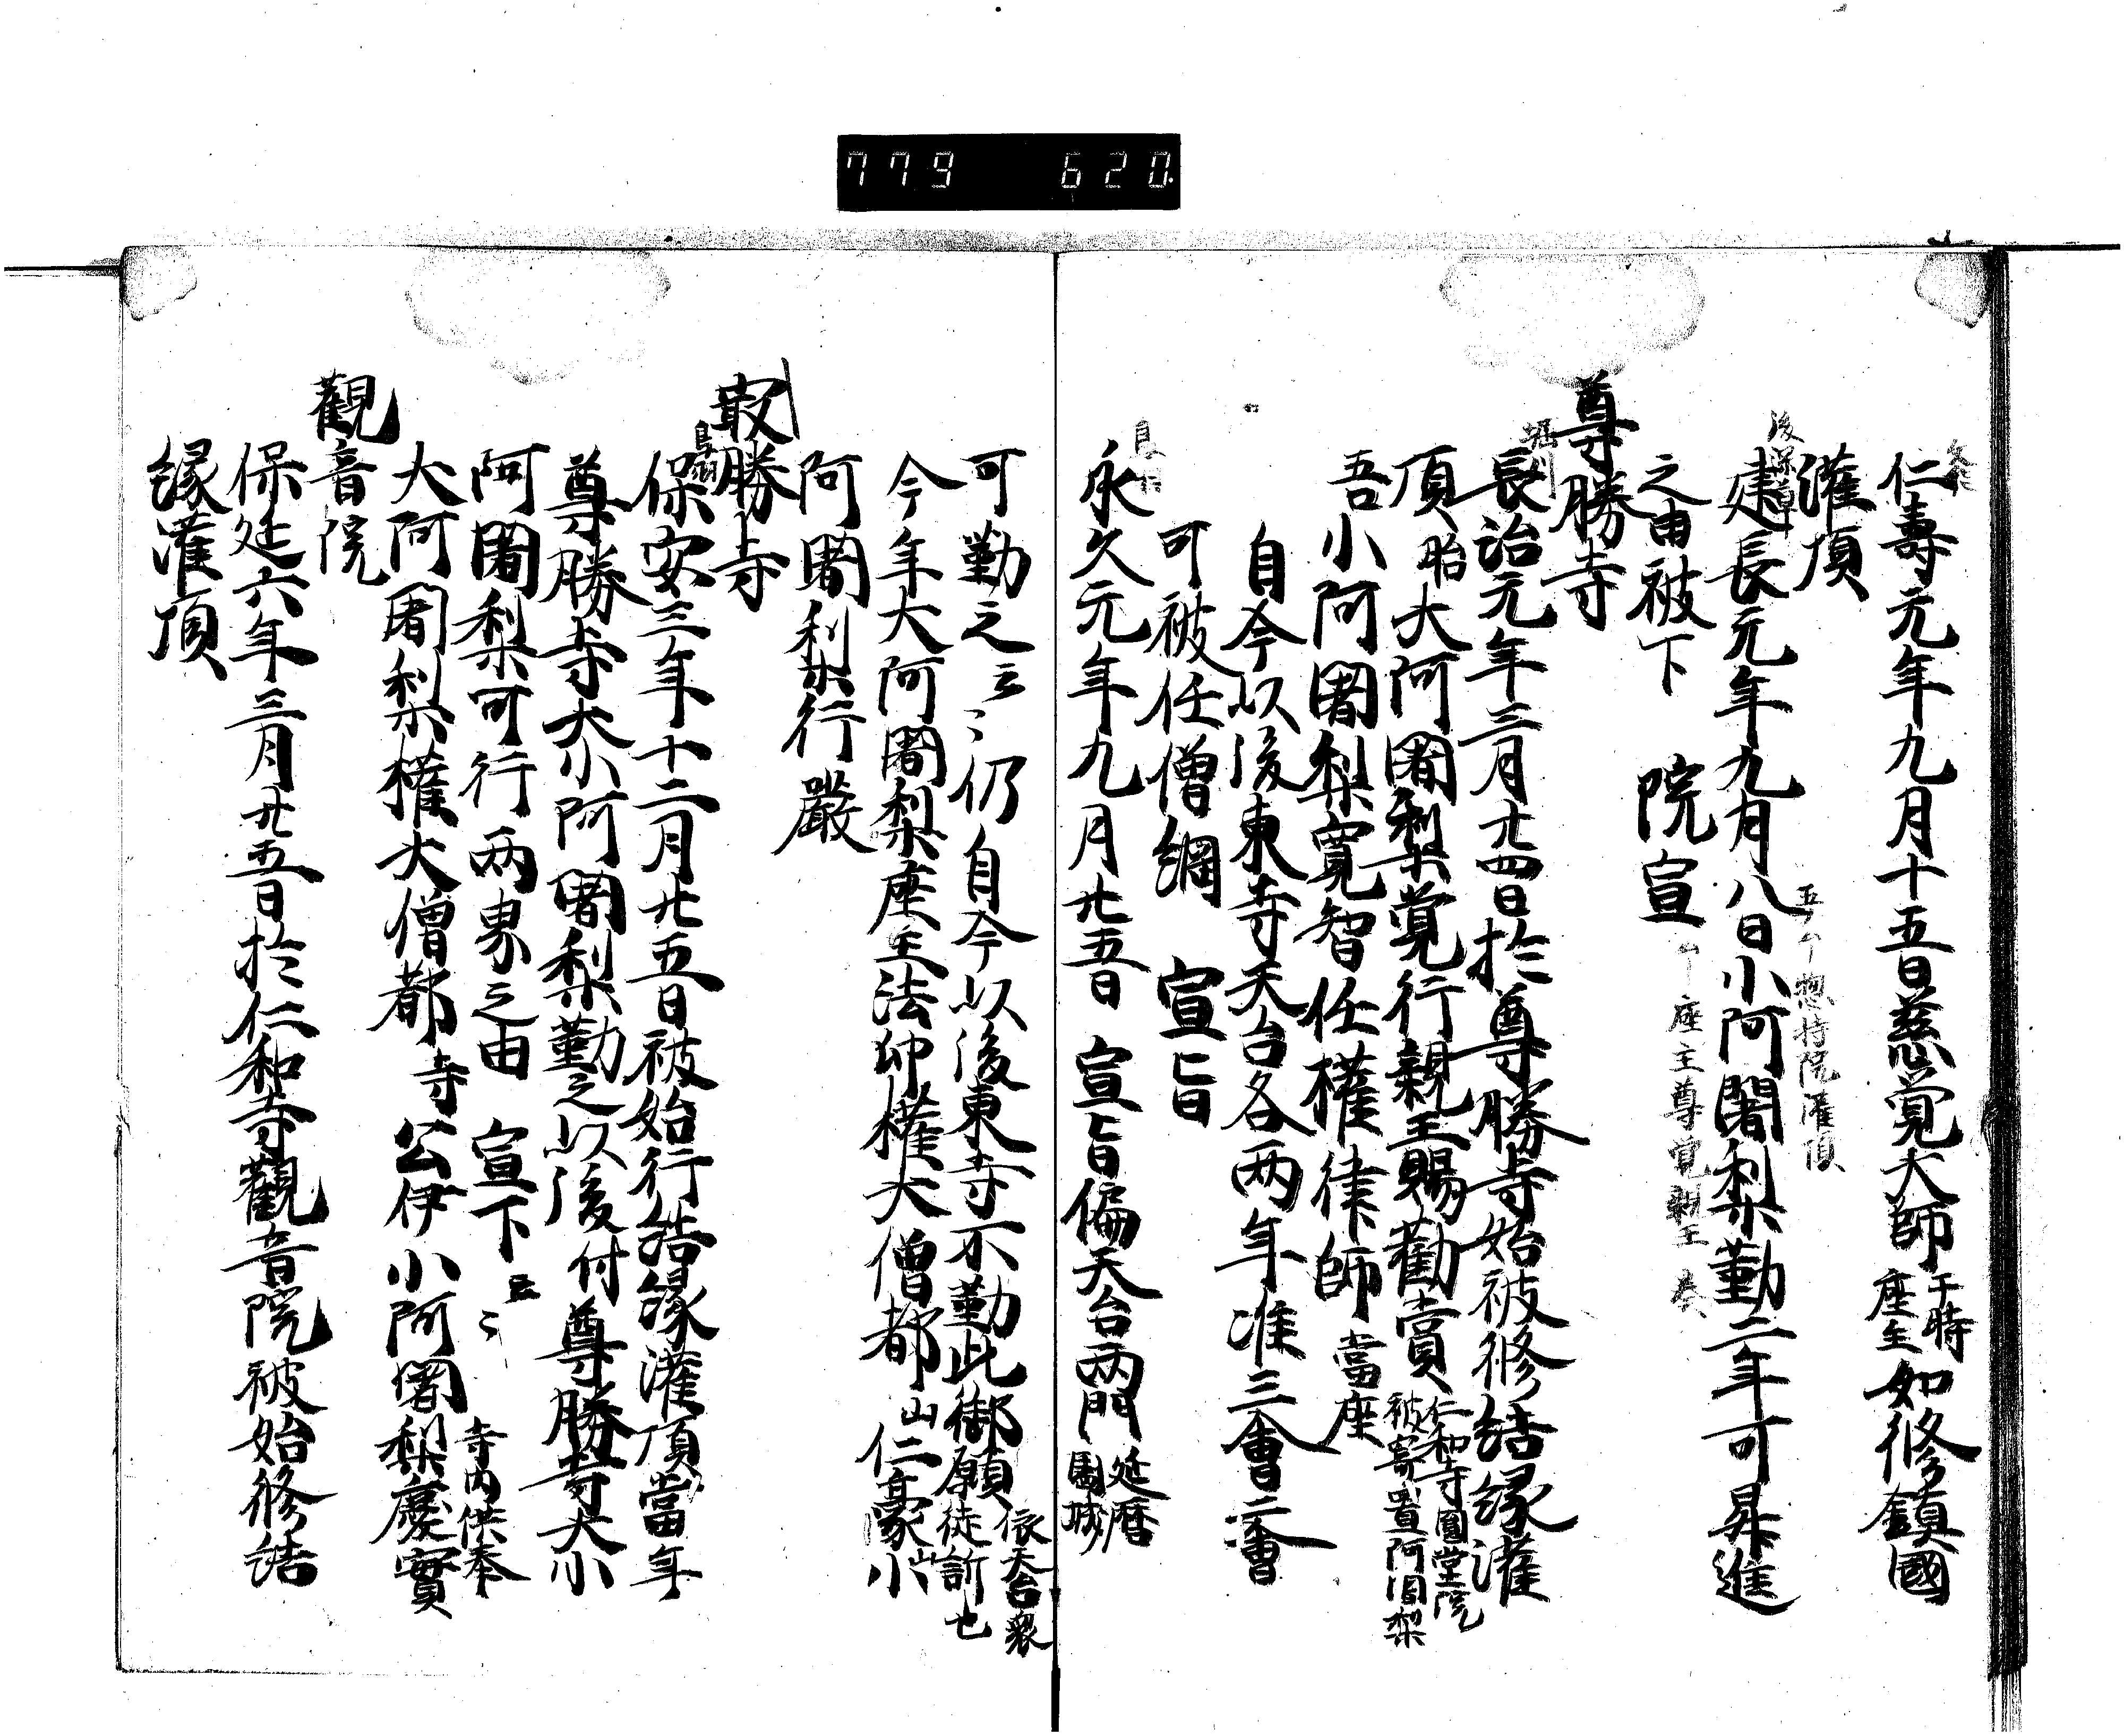 779 620
仁壽元年九月十五日慈覚大師于時座主如修鎮國
灌頂
惣持院灌頂
後深草
建長元年九月八日小阿闍梨勤二年可昇進
之由被下 院宣
座主尊覚親王 奏
尊勝寺
堀川
長治元年三月廿四日於尊勝寺始被修結縁灌
頂胎大阿闍梨覚行親王賜勸賞仁和寺圓堂院被寄置阿闍梨
吾小阿闍梨寛智任權律師當座
自今以後東寺天台各两年准三會二會
可被任僧綱 宣旨
永久元年九月廿五日 宣旨偏天台两門延暦園城
可勤之云〻仍自今以後東寺不勤此御願依天台衆徒訴也
今年大阿闍梨座主法印權大僧都山仁豪小
阿闍梨行嚴
㝡勝寺
保安三年十二月廿五日被始行結縁灌頂當年
尊勝寺大小阿闍梨勤之以後付尊勝寺大小
阿闍梨可行两界之由 宣下云〻
大阿闍梨權大僧都寺公伊小阿闍梨寺内供奉慶實
觀音院
保延六年三月廿五日於仁和寺觀音院被始修結
縁灌頂